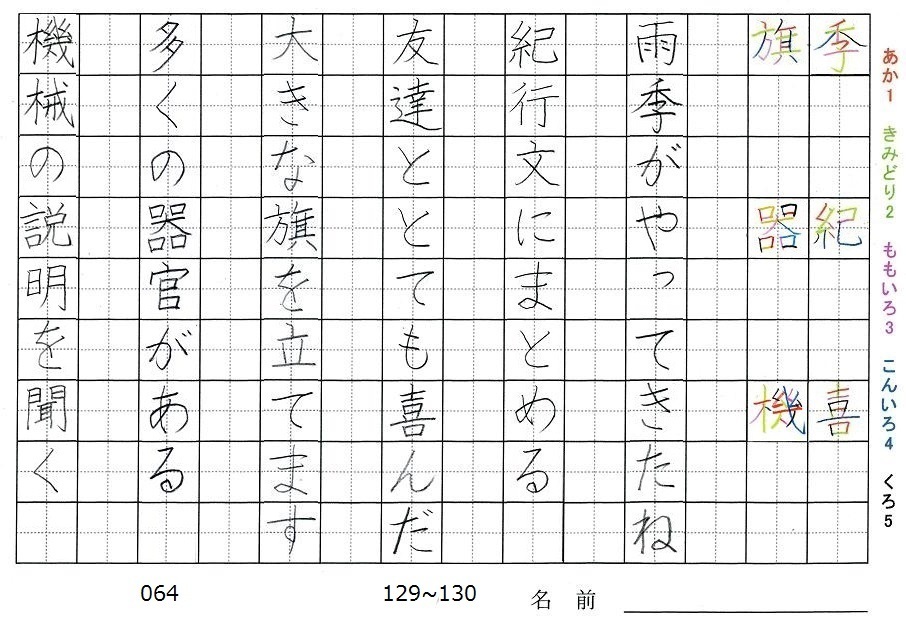 あか1 きみどり2 ももいろ3 こんいろ4 くろ5
季 紀 喜
旗 器 機
雨季がやってきたね
紀行文にまとめる
友達ととても喜んだ
大きな旗を立てます
多くの器官がある
機械の説明を聞く
064 129~130 名前